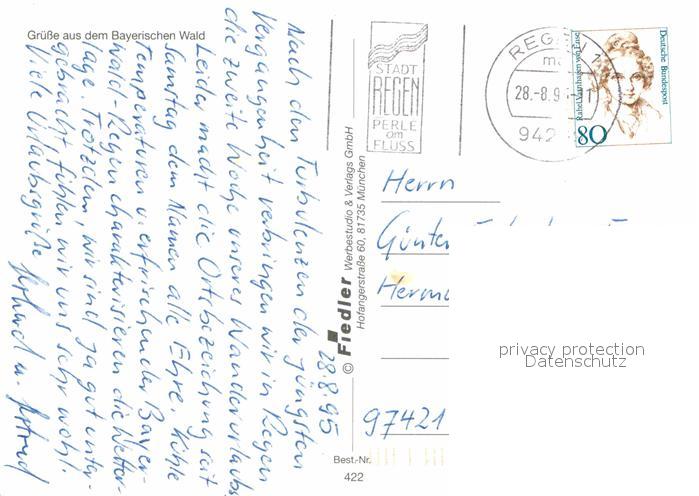 Grüße aus dem Bayerischen Wald
28.8.95
Nach den Turbulenzen der jüngsten
Vergangenheit verbringen wir in Regen
die zweite Woche unseres Wanderurlaubs
Leider macht die Ortsbezeichnung seit
Samstag dem Namen alle Ehre. Kühle
Temperaturen u. erfrischender Bayer-
wald-Regen charakterisieren die Wetter-
lage. Trotzdem, wir sind ja gut unter-
gebracht fühlen wir uns sehr wohl.
Viele Urlaubsgrüße
u.
© Fiedler Werbestudio & Verlags GmbH
Hofangerstraße 60, 81735 München
Best.-Nr.
422
STADT
REGEN
PERLE
am
FLUSS
REGEN 1
28.-8.9
942
Deutsche Bundespost
Rahel Varnhagen von Ense
80
Herrn
Günter
Herm
97421
privacy protection
Datenschutz